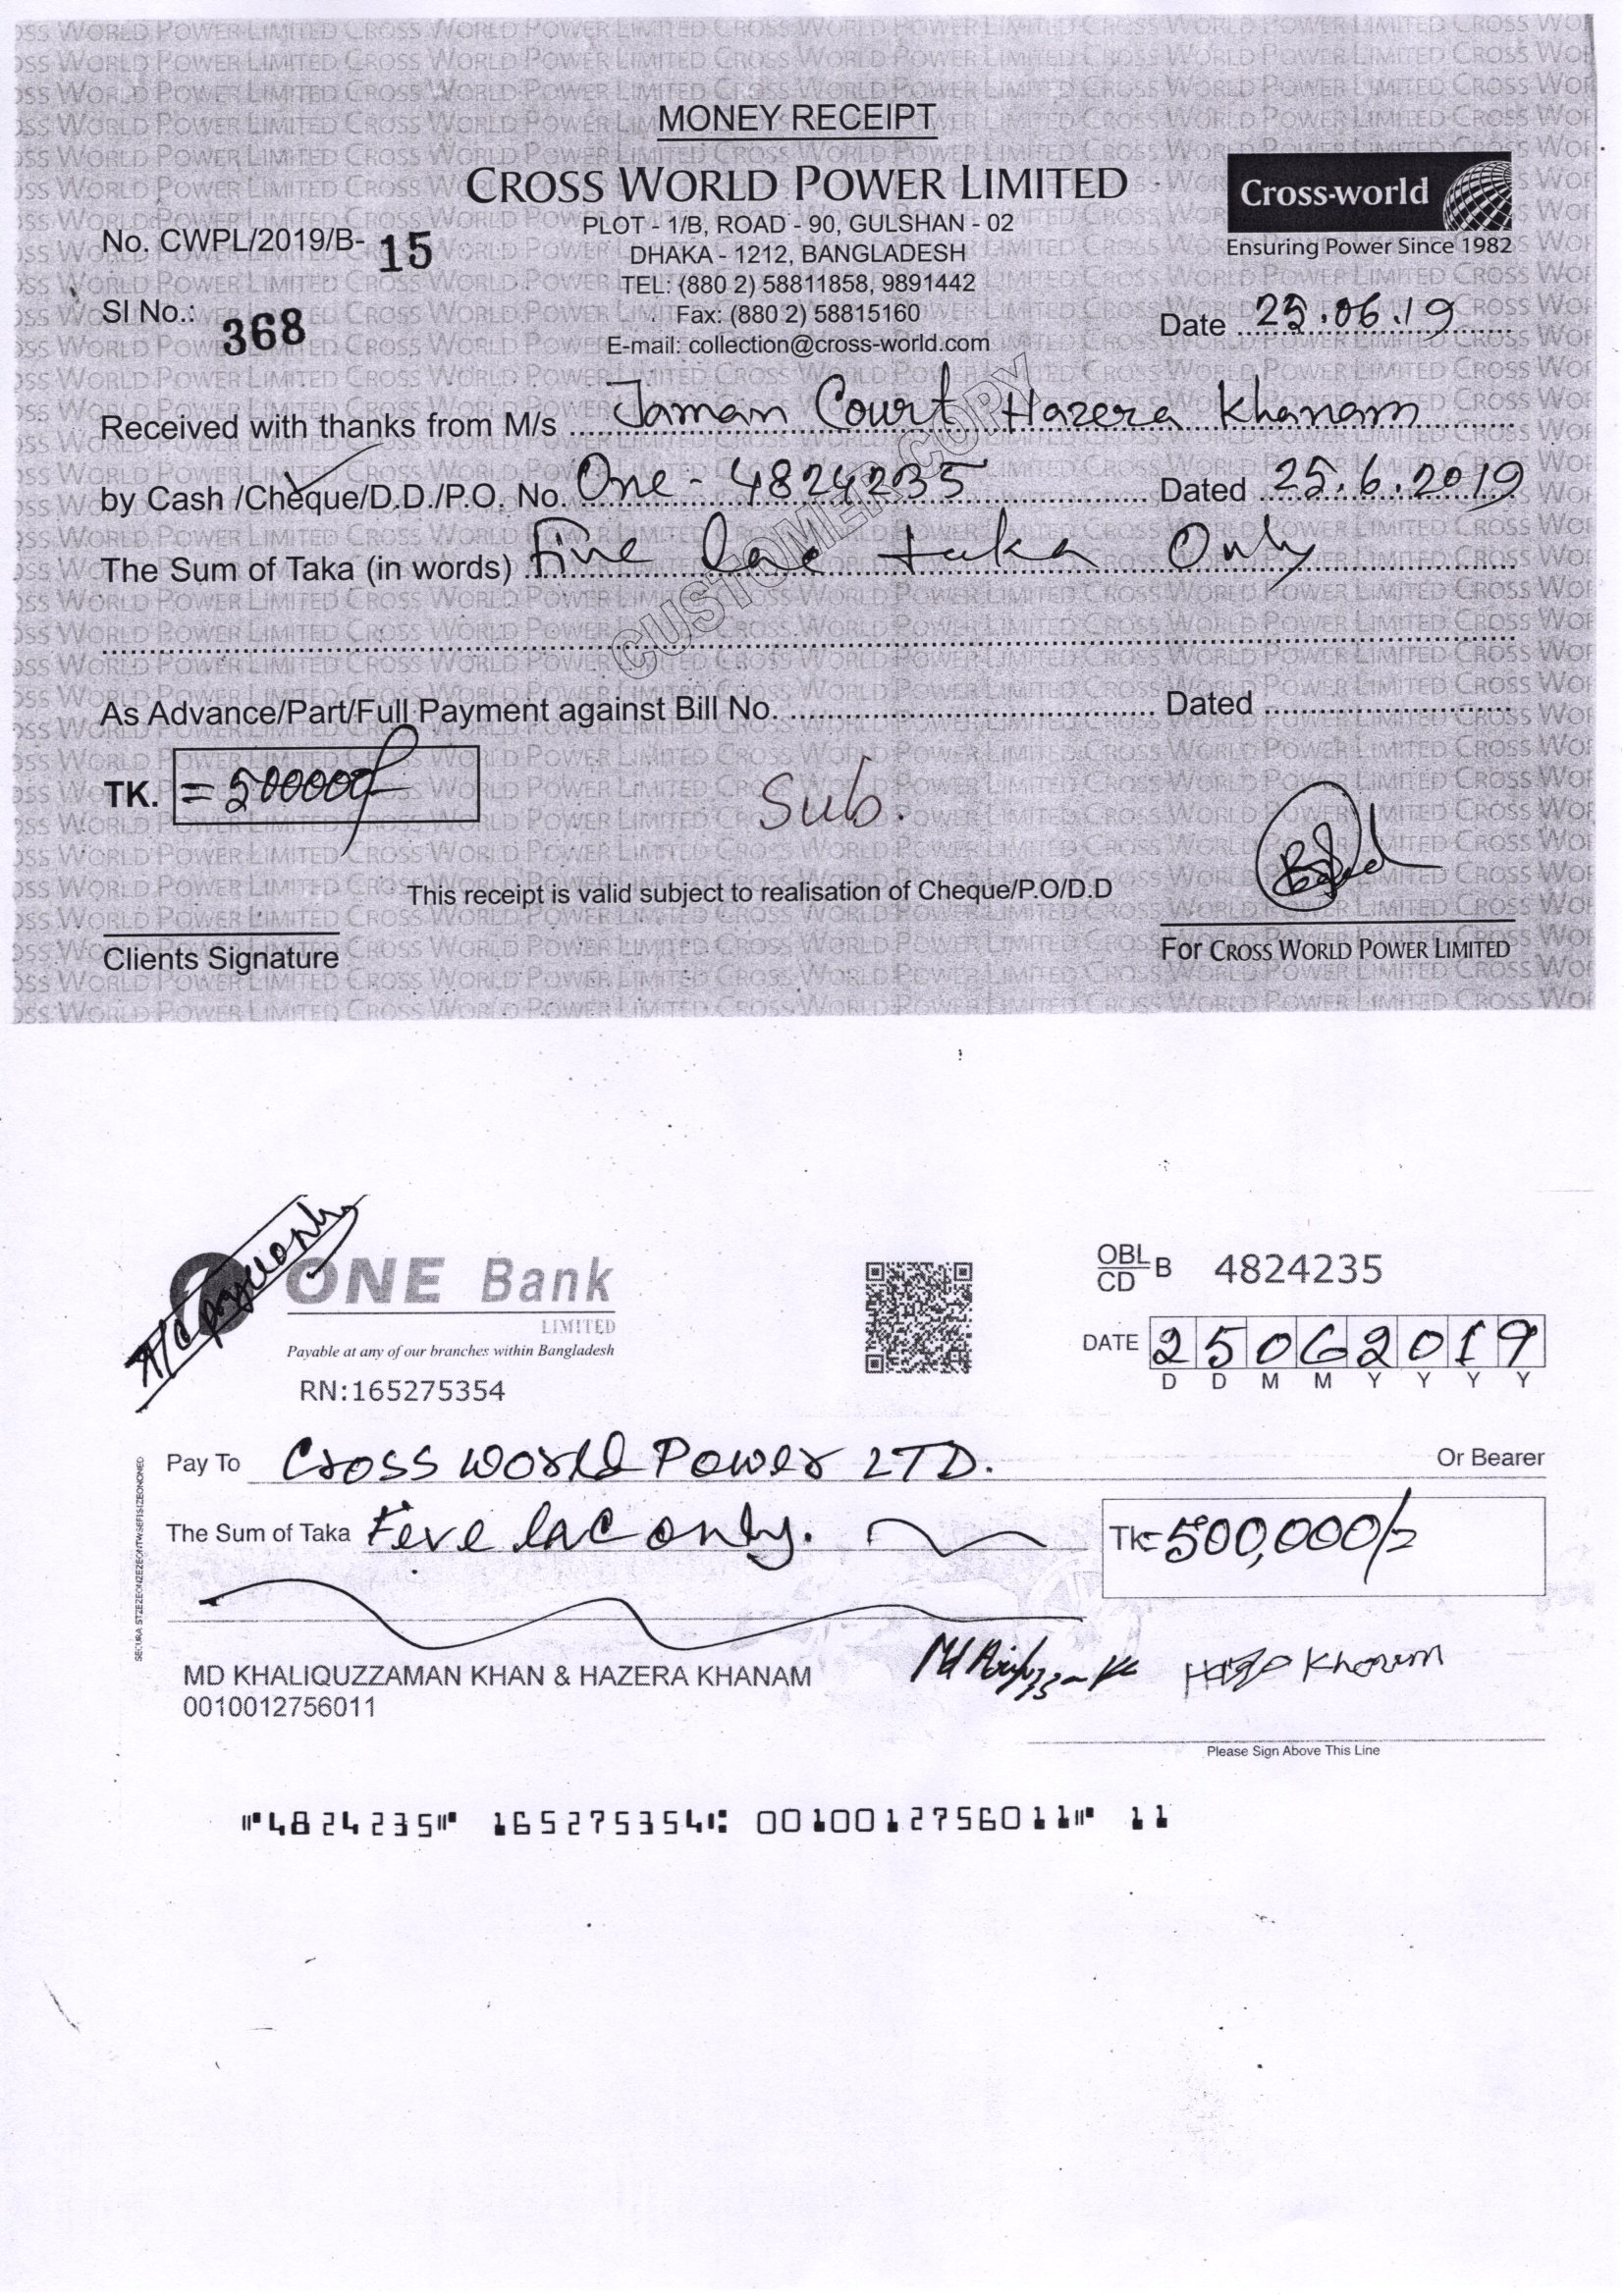 MONEY RECEIPT
CROSS WORLD POWER LIMITED
Cross-world
Ensuring Power Since 1982
PLOT - 1/B, ROAD - 90, GULSHAN - 02
DHAKA - 1212, BANGLADESH
TEL: (880 2) 58811858, 9891442
Fax: (880 2) 58815160
E-mail: collection@cross-world.com
No. CWPL/2019/B- 15
Sl No.: 368
Date 25.06.19
CUSTOMER COPY
Received with thanks from M/s Jaman Court Hazera Khanam
by Cash /Cheque/D.D./P.O. No. One - 4824235 Dated 25.6.2019
The Sum of Taka (in words) Five lac taka Only
As Advance/Part/Full Payment against Bill No. Dated
TK. =500000/-
Sub.
This receipt is valid subject to realisation of Cheque/P.O/D.D
Clients Signature
For CROSS WORLD POWER LIMITED
A/C payee only
ONE Bank
LIMITED
Payable at any of our branches within Bangladesh
RN:165275354
OBL CD B 4824235
DATE 25062019
D D M M Y Y Y Y
Pay To Cross World Power LTD. Or Bearer
The Sum of Taka Five lac only. Tk=500,000/=
MD KHALIQUZZAMAN KHAN & HAZERA KHANAM
0010012756011
Khanam
Please Sign Above This Line
⑈4824235⑈ 165275354⑆ 0010012756011⑈ 11